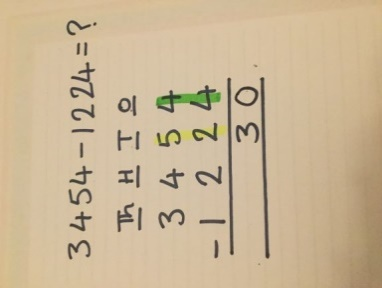 3454-1224=?
Th H T O
3 4 5 4
-1 2 2 4
3 0